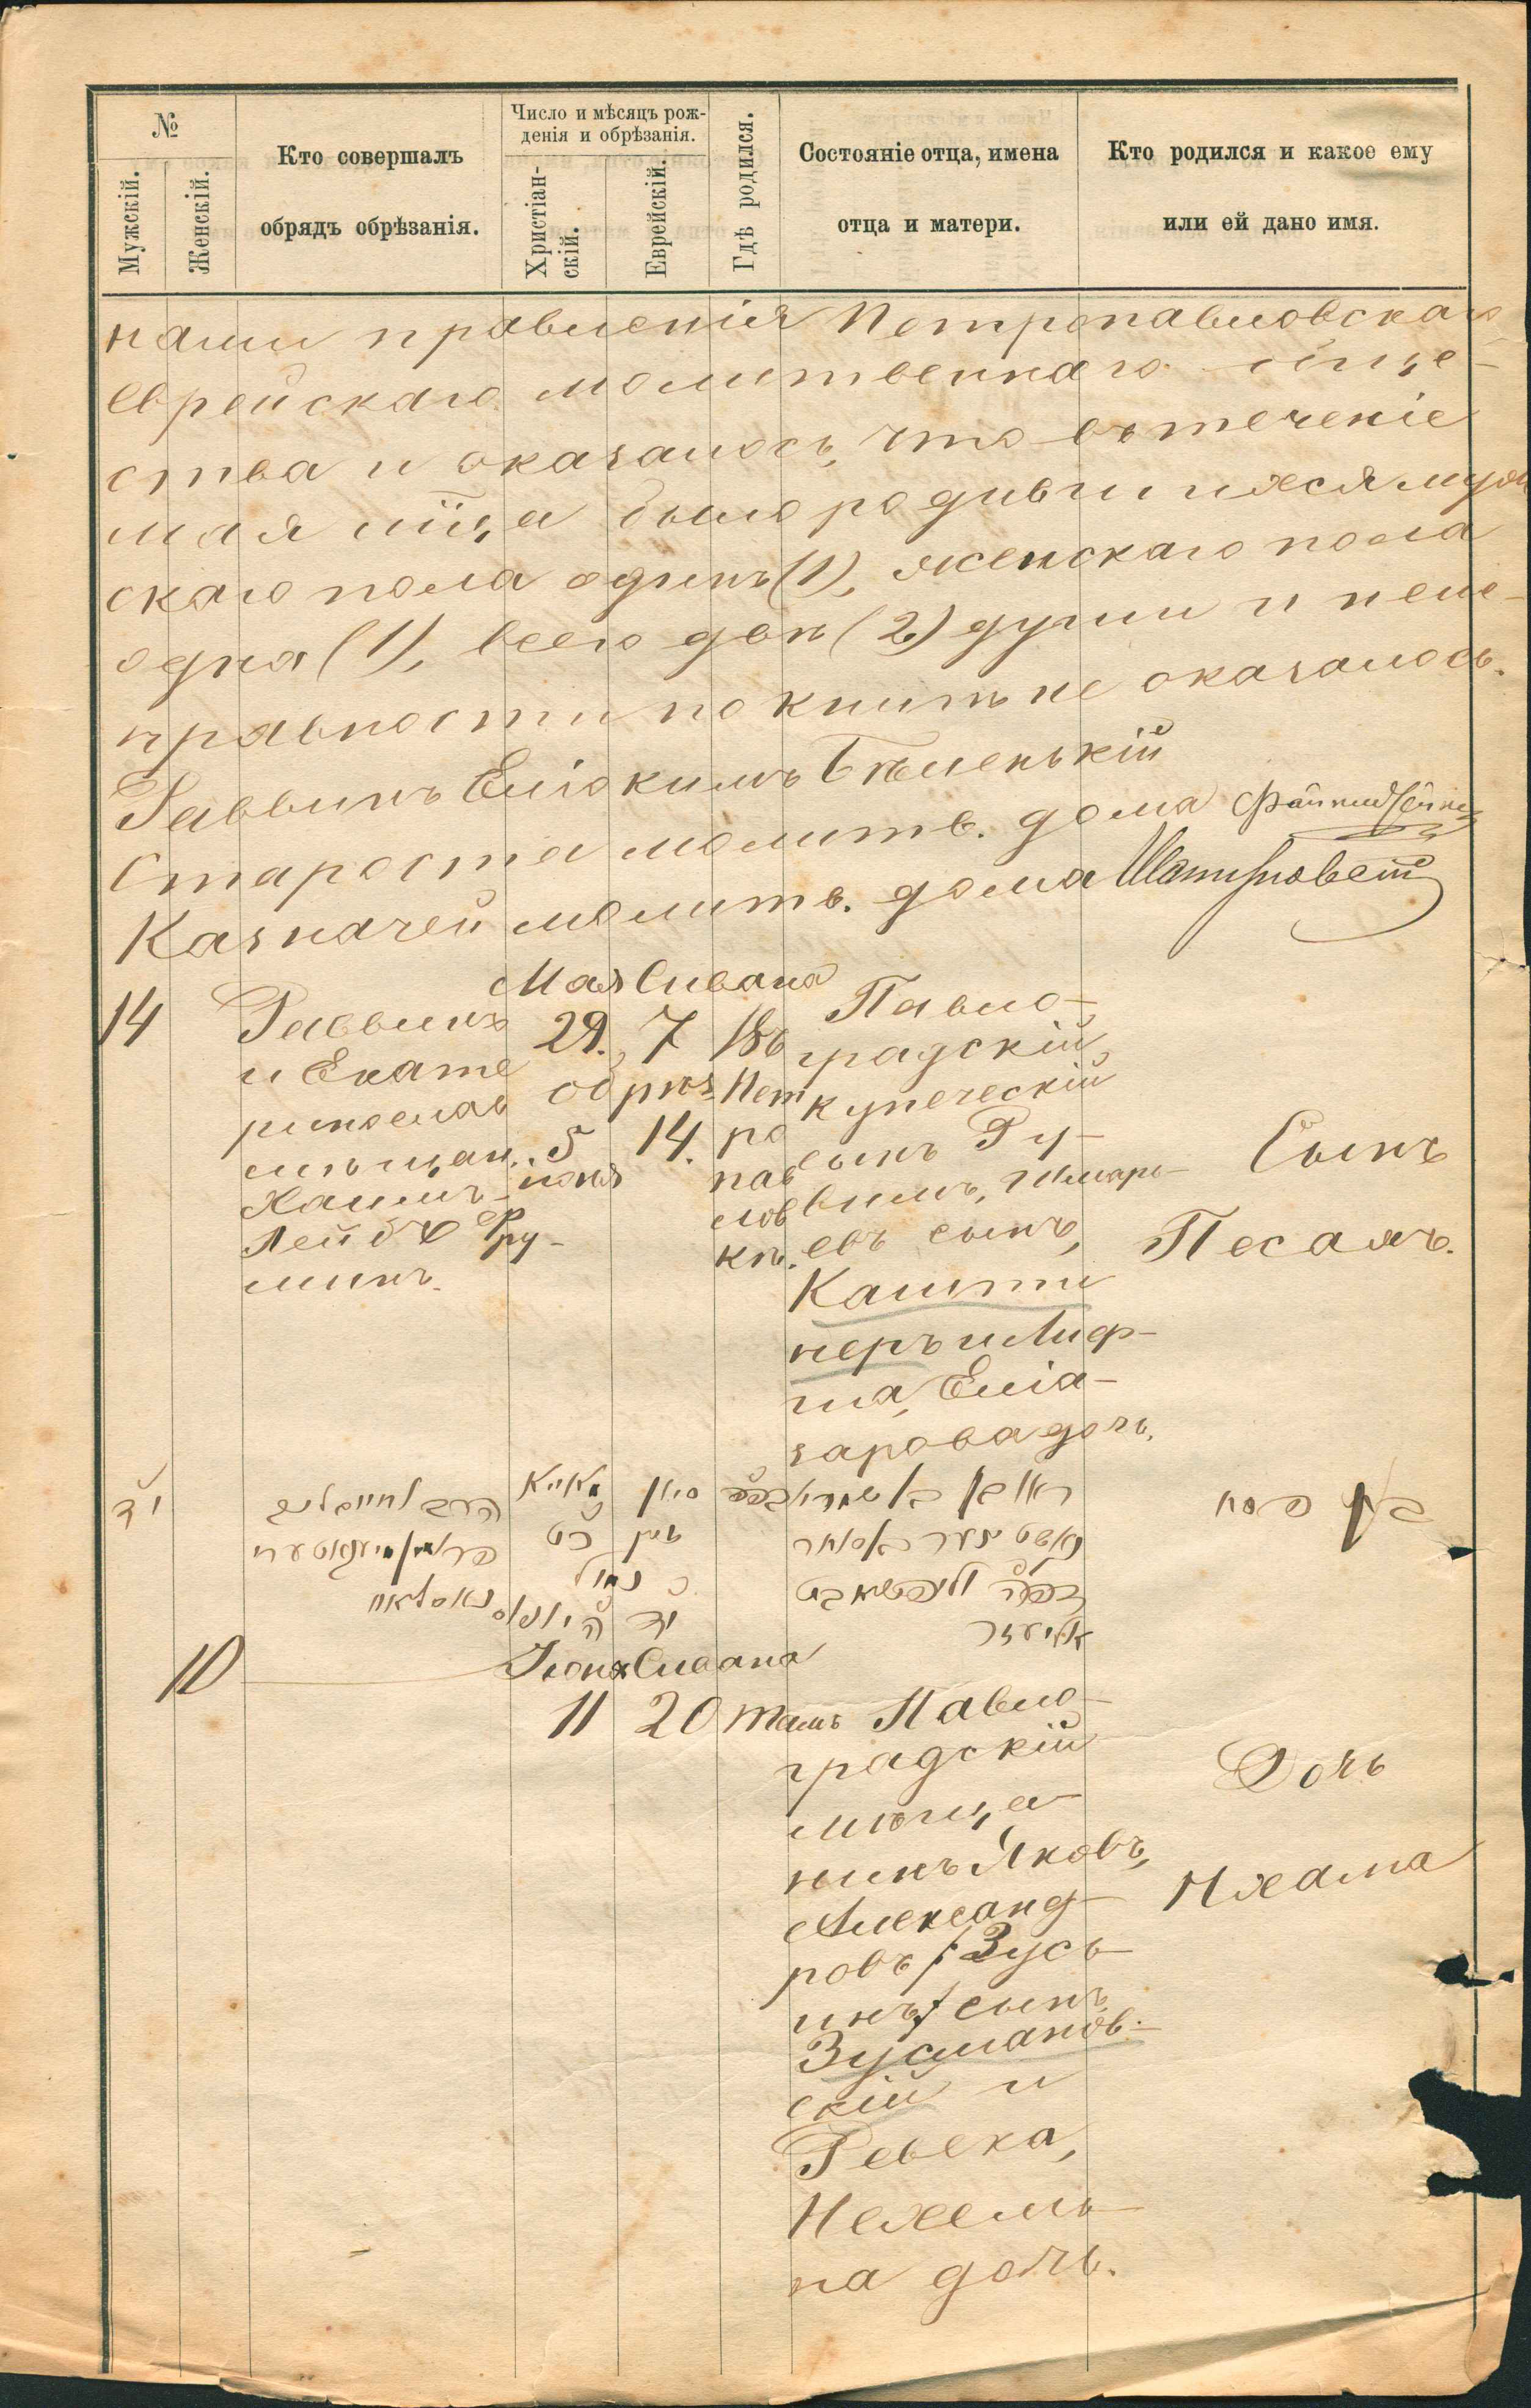 №
Мужскій.
Женскій.
Кто совершалъ
обрядъ обрѣзанія.
Число и мѣсяцъ рож-
денія и обрѣзанія.
Христіан-
скій.
Еврейскій.
Гдѣ родился.
Состояніе отца, имена
отца и матери.
Кто родился и какое ему
или ей дано имя.
нами правленія Петропавловскаго
еврейскаго молитвеннаго обще-
ства и оказалось, что въ теченіе
мая м-ца было родившихся муж
скаго пола одинъ (1), женскаго пола
одна (1), всего двѣ (2) души и неис-
правности по книгѣ не оказалось.
Раввинъ Еліокимъ Бѣленькій
Староста молитв. дома
Казначей молитв. дома
14
Раввинъ
и Екате
ринослав
мѣщан.
Хаимъ-
Лейбъ Фру-
минъ.
Мая Сивана
29. 7
обрѣз
5 14.
іюня
Въ
Пет
ро
пав
лов
кѣ.
Павло-
градскій
купеческій
сынъ Ру-
вимъ, Шмарь-
евъ сынъ,
Кашти
неръ и Лиф-
ша, Еліа-
зарова дочь.
Сынъ
Песахъ.
יד
10
Іюня Сивана
11 20 тамъ
Павло-
градскій
мѣща-
нинъ Яковъ,
Александ-
ровъ /Зусь-
инъ/ сынъ
Зусмановъ-
скій и
Ревека,
Нехемь-
на дочь.
Дочь
Нхама